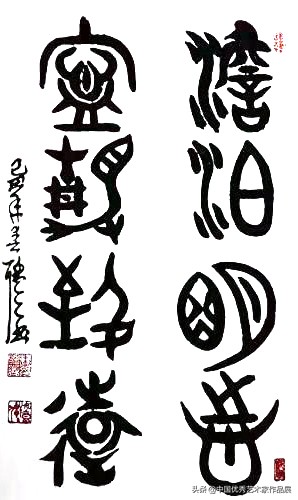 澹泊明志
寧靜致遠
己亥年春
头条 @中国优秀艺术家作品展